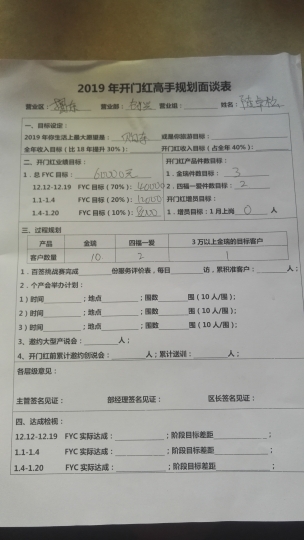 2019年开门红高手规划面谈表
营业区： 营业部： 营业组： 姓名：
一、目标设定：
2019年你生活上最大愿望是： 或是你旅游目标：
全年收入目标（比18年提升30%）： 开门红收入目标（占全年40%）：
二、开门红业绩目标： 开门红产品件数目标：
1．总FYC目标： 60000元 1．金瑞件数目标： 3
12.12-12.19 FYC目标（70%）： 2．四福一爱件数目标： 2
1.1-1.4 FYC目标（20%）：12000 开门红增员目标：
1.4-1.20 FYC目标（10%）： 1．增员目标：1月上岗 0 人
三、过程规划
产品 金瑞 四福一爱 3万以上金瑞的目标客户
客户数量 10 2 1
1．百签挑战赛完成 份服务评价表，每日 访，累积准客户： 人；
2．个产会举办计划：
1）时间 ；地点 ；围数 围（10人/围）；
2）时间 ；地点 ；围数 围（10人/围）；
3）时间 ；地点 ；围数 围（10人/围）；
3、邀约大型产说会： 人；
4、开门红前累计邀约创说会： 人；累计送训： 人；
各层级意见：
主管签名见证： 部经理签名见证： 区长签名见证：
四、达成检视：
12.12-12.19 FYC实际达成： ；阶段目标差距 ；
1.1-1.4 FYC实际达成： ；阶段目标差距 ；
1.4-1.20 FYC实际达成： ；阶段目标差距 ；